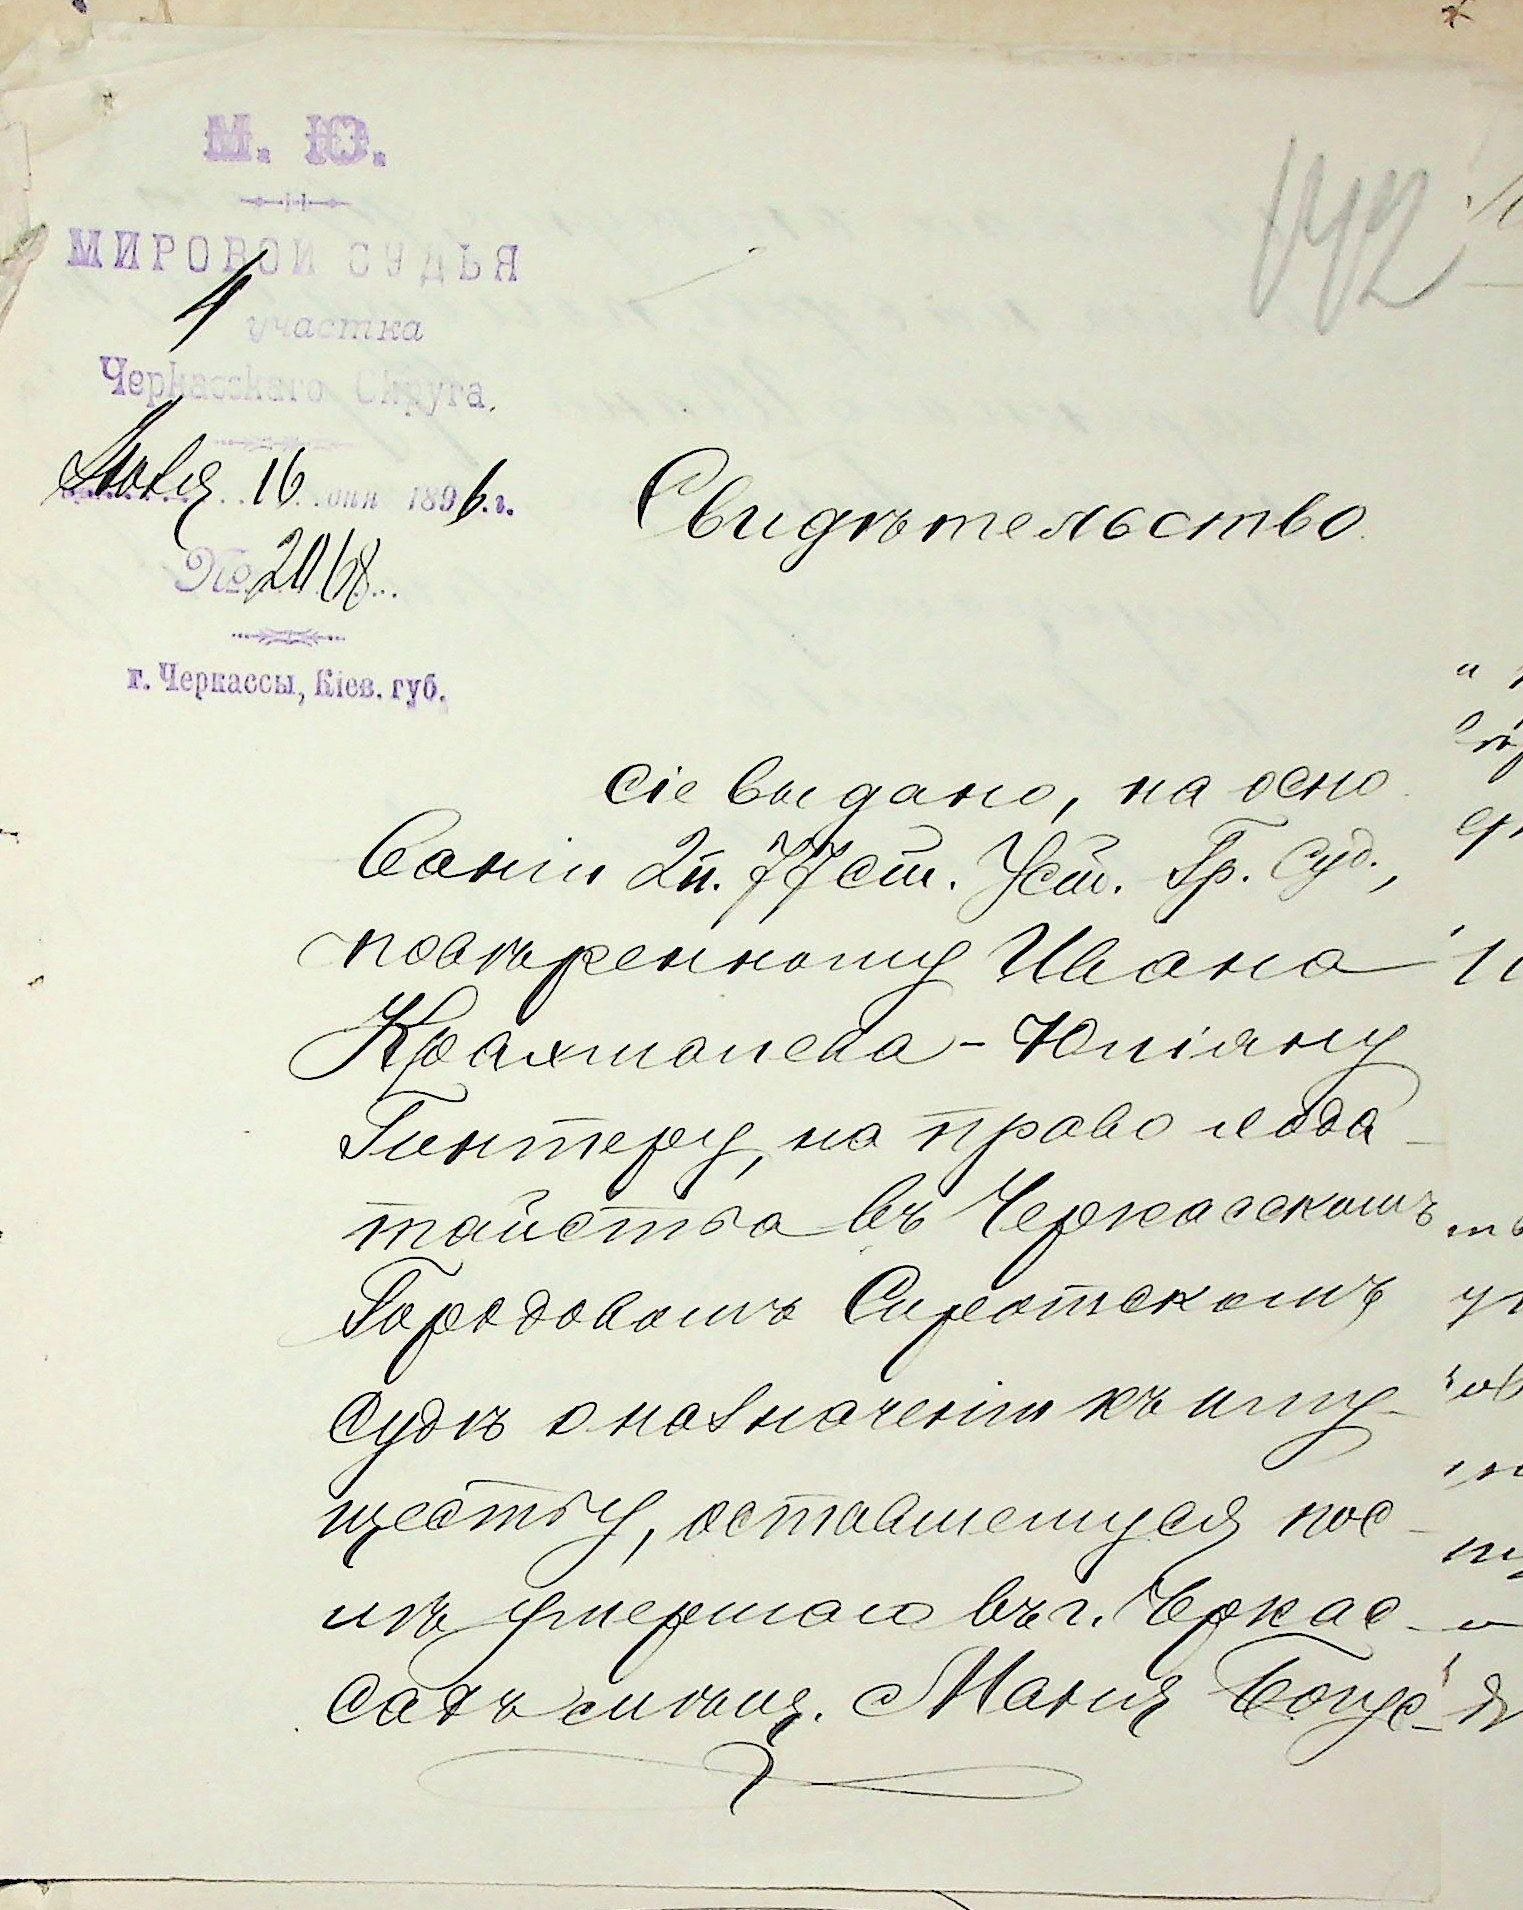 М. Ю.
МИРОВОЙ СУДЬЯ
4 участка
Черкасскаго Округа.
16 дня 1896 г.
№ 2068
г. Черкассы, Кіев. губ.
142
Свидѣтельство.
Сіе выдано, на осно
ваніи 2 п. 77 ст. Уст. Гр. Суд.,
повѣренному Ивана
Крахмалева - Юліану
Гинтеру, на право хода-
тайства въ Черкасскомъ
Городовомъ Сиротскомъ
Судѣ о назначеніи къ иму-
ществу, оставшемуся пос-
лѣ умершаго въ г. Черкас-
сахъ